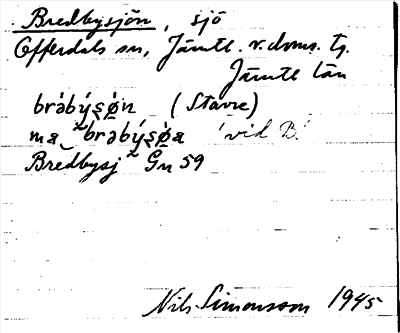 Bredbysjön, sjö
Offerdals sn, Jämtl. v. doms. tg.
Jämtl län
brə̀býʂø̣n (Stavre)
na ̃ brəbýʂø̣a 'vid B.'
Bredbysj ̃ Gn 59
Nils Simonsson 1945